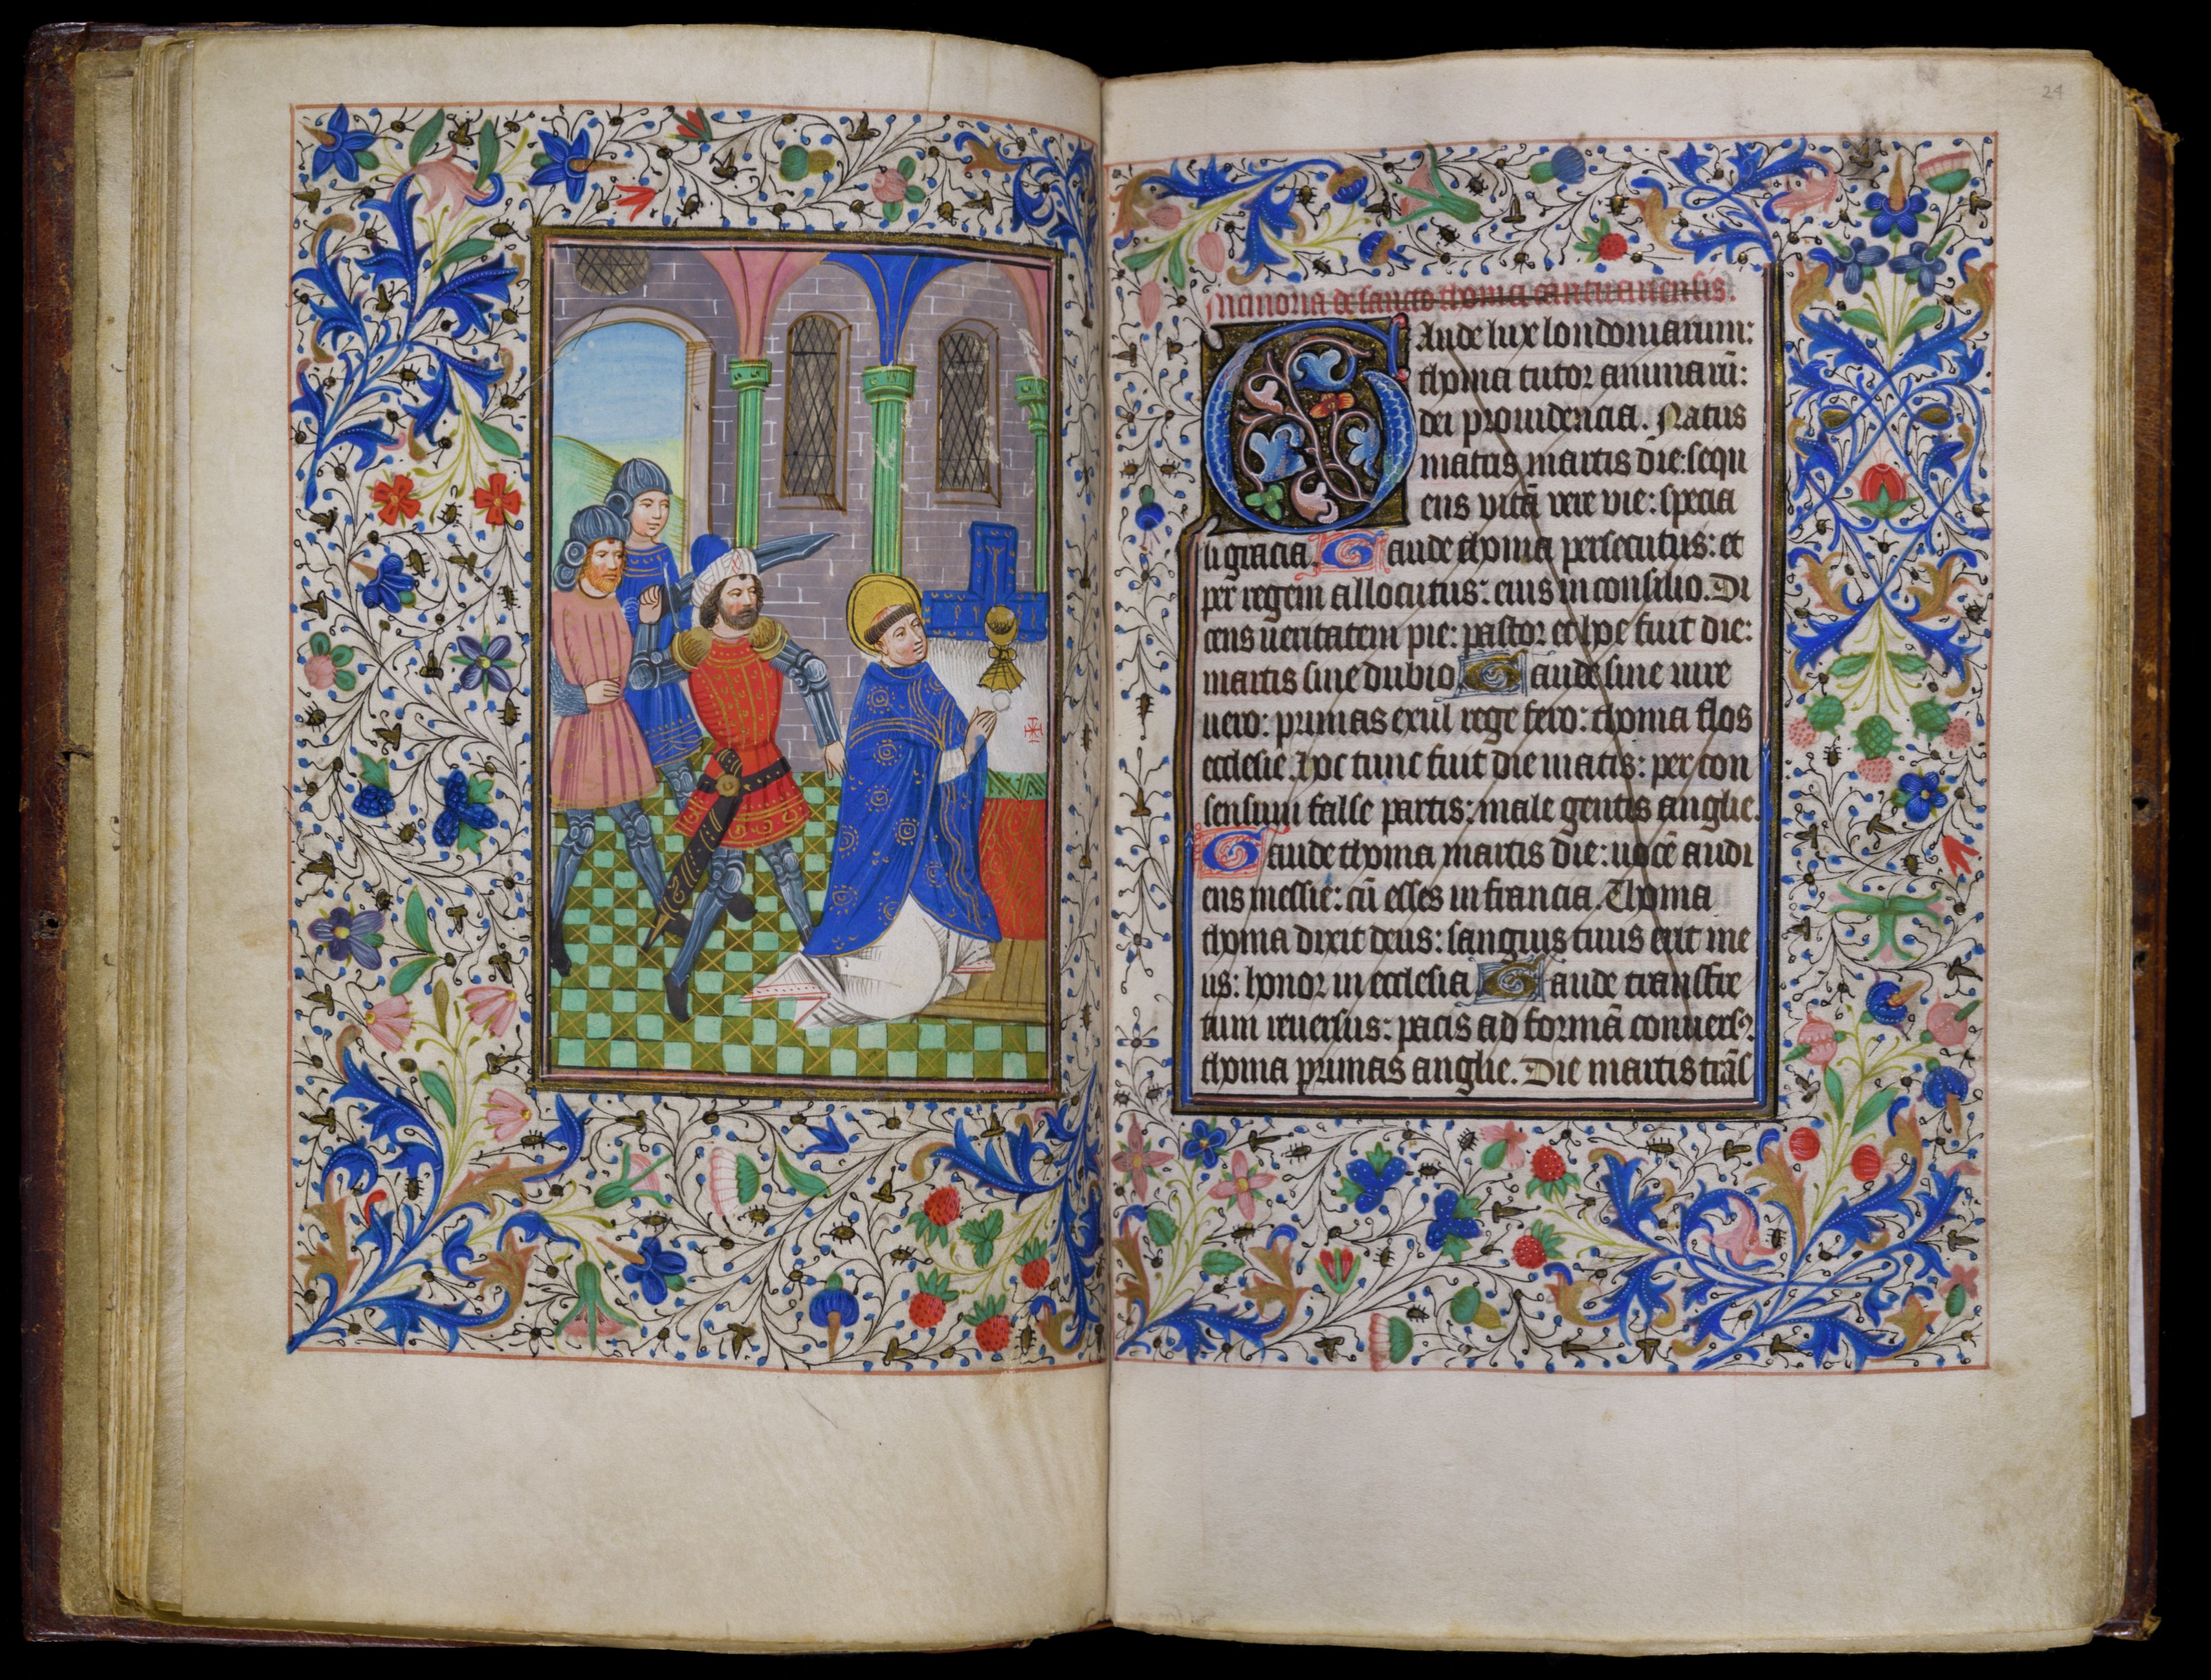 24
Memoria de sancto thoma cantuariensis.
Gaude lux londoniarum:
thoma tutor animarū:
dei prouidencia. Natus
matris martis die: sequ
ens vitā vere vie: specia
li gracia. Gaude thoma persecutus: et
per regem allocutus: eius in consilio. Di
cens ueritatem pie: pastor et hoc fuit die:
martis sine dubio Gaude sine uire
uero: primas exul rege fero: thoma flos
ecclesie. hoc tunc fuit die matis: per con
sensum false partis: male gentis anglie.
Gaude thoma martis die: uocē audi
ens messie: cū esses in francia. Thoma
thoma dixit deus: sanguis tuus erit me
us: honor in ecclesia Gaude transfre
tum reuersus: pacis ad formā conuersꝰ:
thoma primas anglie. Die martis trās